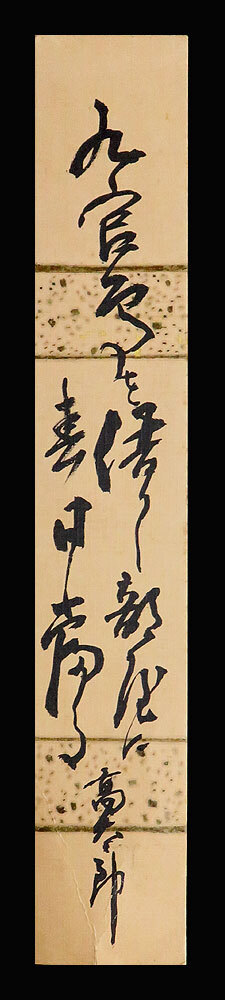 九官鳥を借りし部屋に
春日當る
高太郎